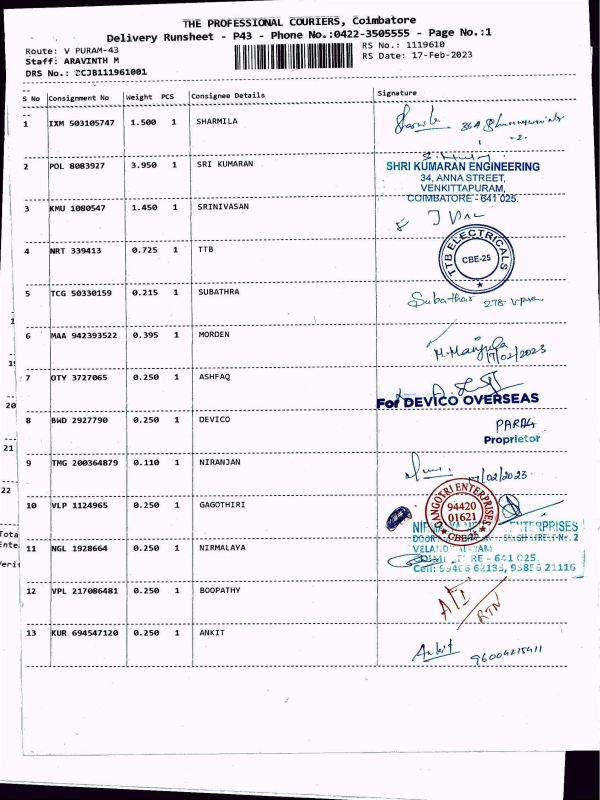 THE PROFESSIONAL COURIERS, Coimbatore
Delivery Runsheet - P43 - Phone No.:0422-3505555 - Page No.:1
Route: V PURAM-43
RS No.: 1119610
Staff: ARAVINTH M
RS Date: 17-Feb-2023
DRS No.: DCJB111961001
S No Consignment No Weight PCS Consignee Details Signature
1 IXM 503105747 1.500 1 SHARMILA
2 POL 8083927 3.950 1 SRI KUMARAN
SHRI KUMARAN ENGINEERING
34, ANNA STREET,
VENKITTAPURAM,
COIMBATORE - 641 025.
3 KMU 1080547 1.450 1 SRINIVASAN
4 NRT 339413 0.725 1 TTB
TTB ELECTRICALS
CBE-25
5 TCG 50330159 0.215 1 SUBATHRA
Subathra 278
6 MAA 942393522 0.395 1 MORDEN
M. Manjula
17/02/2023
7 OTY 3727065 0.250 1 ASHFAQ
For DEVICO OVERSEAS
8 BWD 2927790 0.250 1 DEVICO
PARAG
Proprietor
9 TMG 200364879 0.110 1 NIRANJAN
17/02/2023
10 VLP 1124965 0.250 1 GAGOTHIRI
GANGOTRI ENTERPRISES
94420
01621
CBE-25
11 NGL 1928664 0.250 1 NIRMALAYA
ENTERPRISES
DOOR
RE - 641 025.
12 VPL 217086481 0.250 1 BOOPATHY
RTN
13 KUR 694547120 0.250 1 ANKIT
Ankit 96004215411
20
21
22